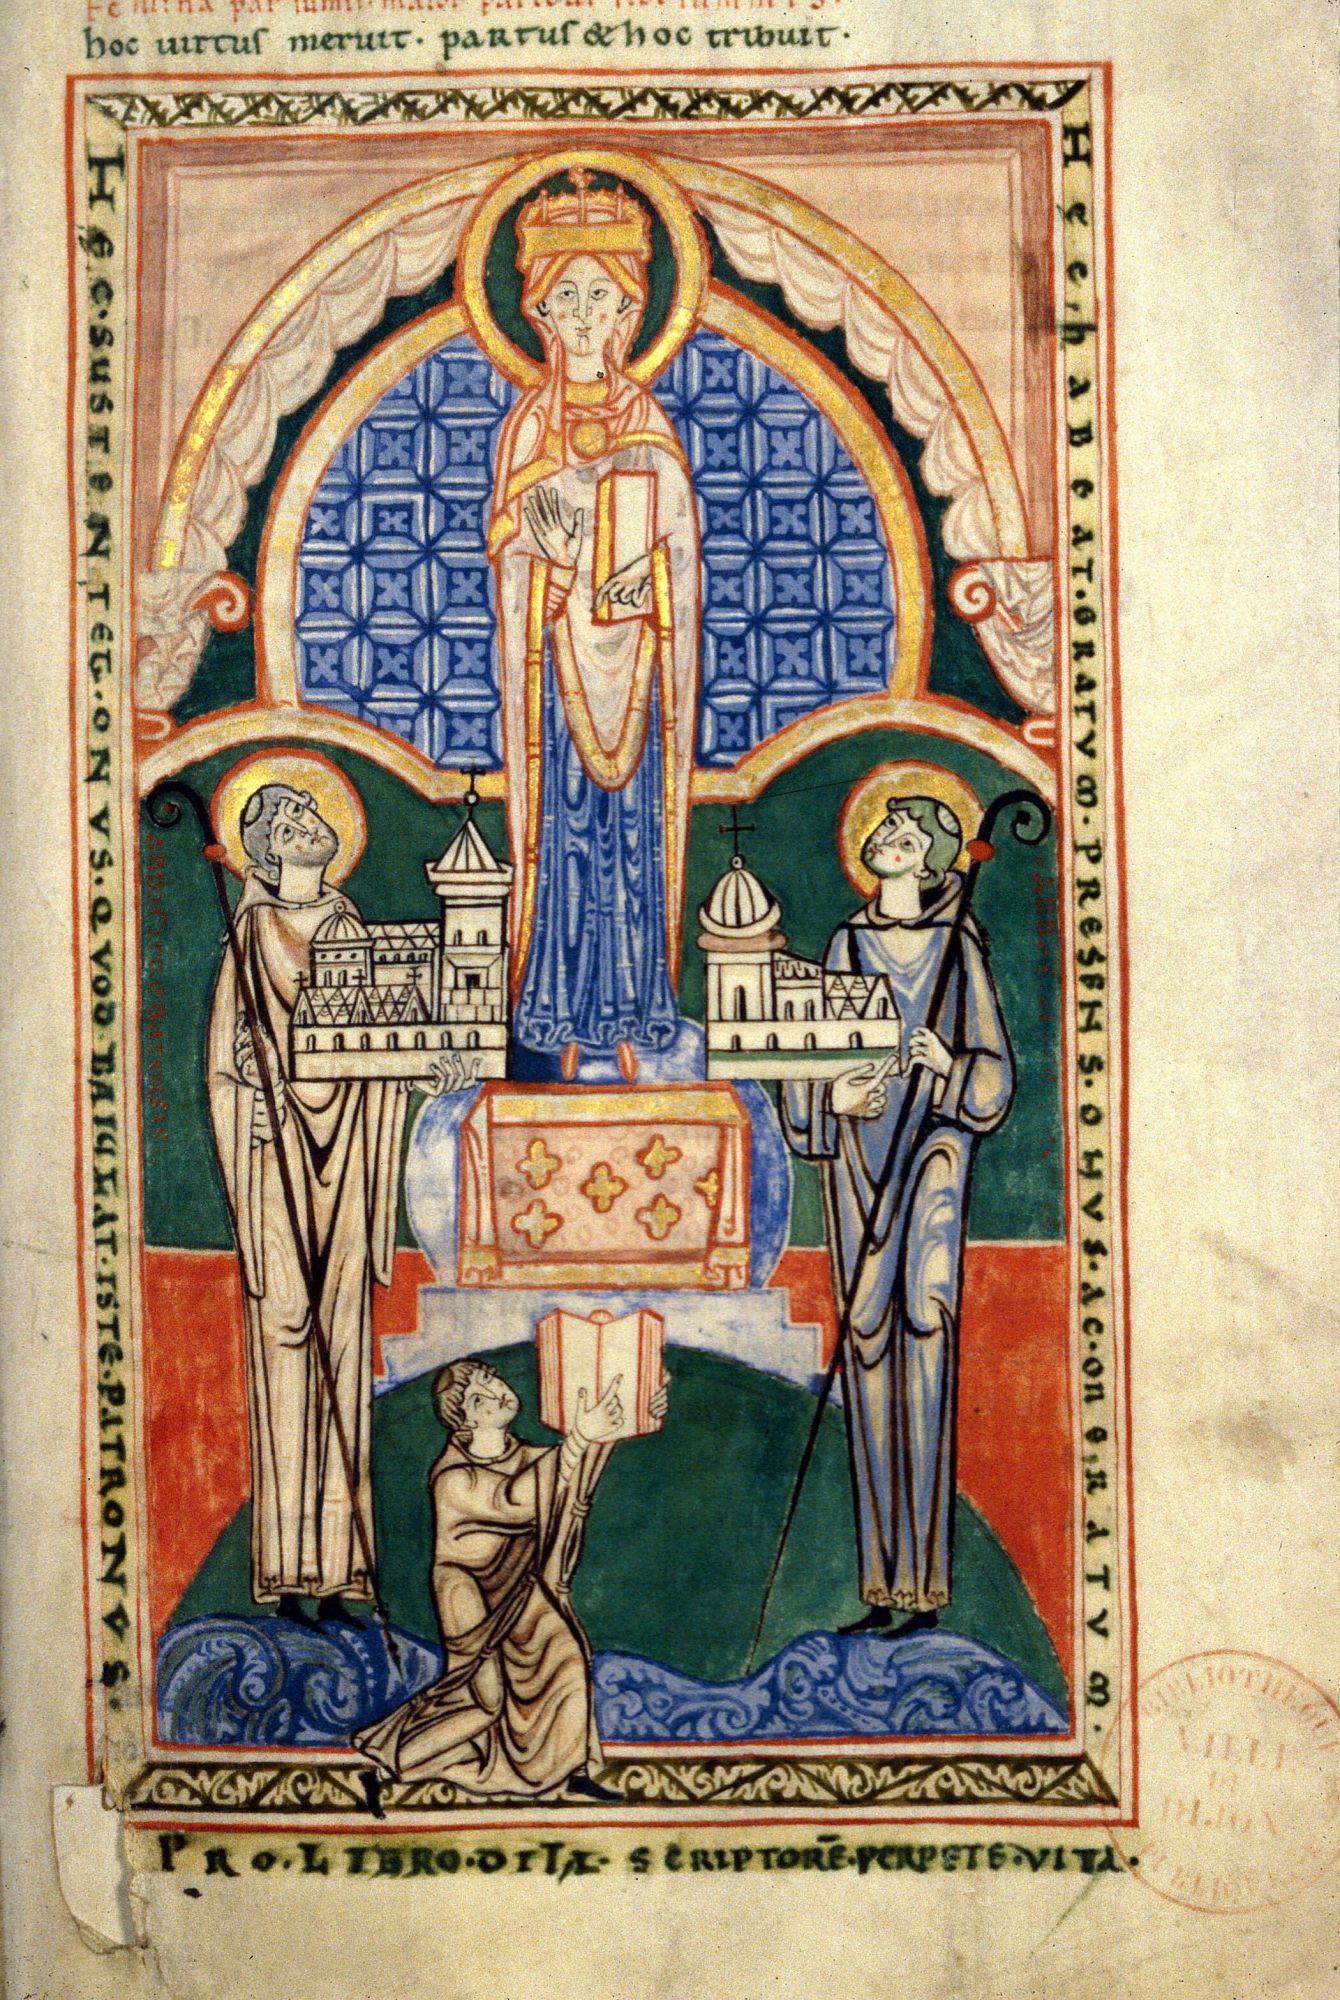 hoc uirtus meruit. partus & hoc tribuit.
HEC.SUSTENTET.ONVS.QVOD.BAIULAT.ISTE.PATRONVS.
HEC.HABEAT.GRATVM.PRESENS.ONVS.AC.ONERATVM.
PRO.LIBRO.DITA.SCRIPTORĒ.PERPETE.VITA.
BIBLIOTHEQUE
VILLE
DE
DIJON